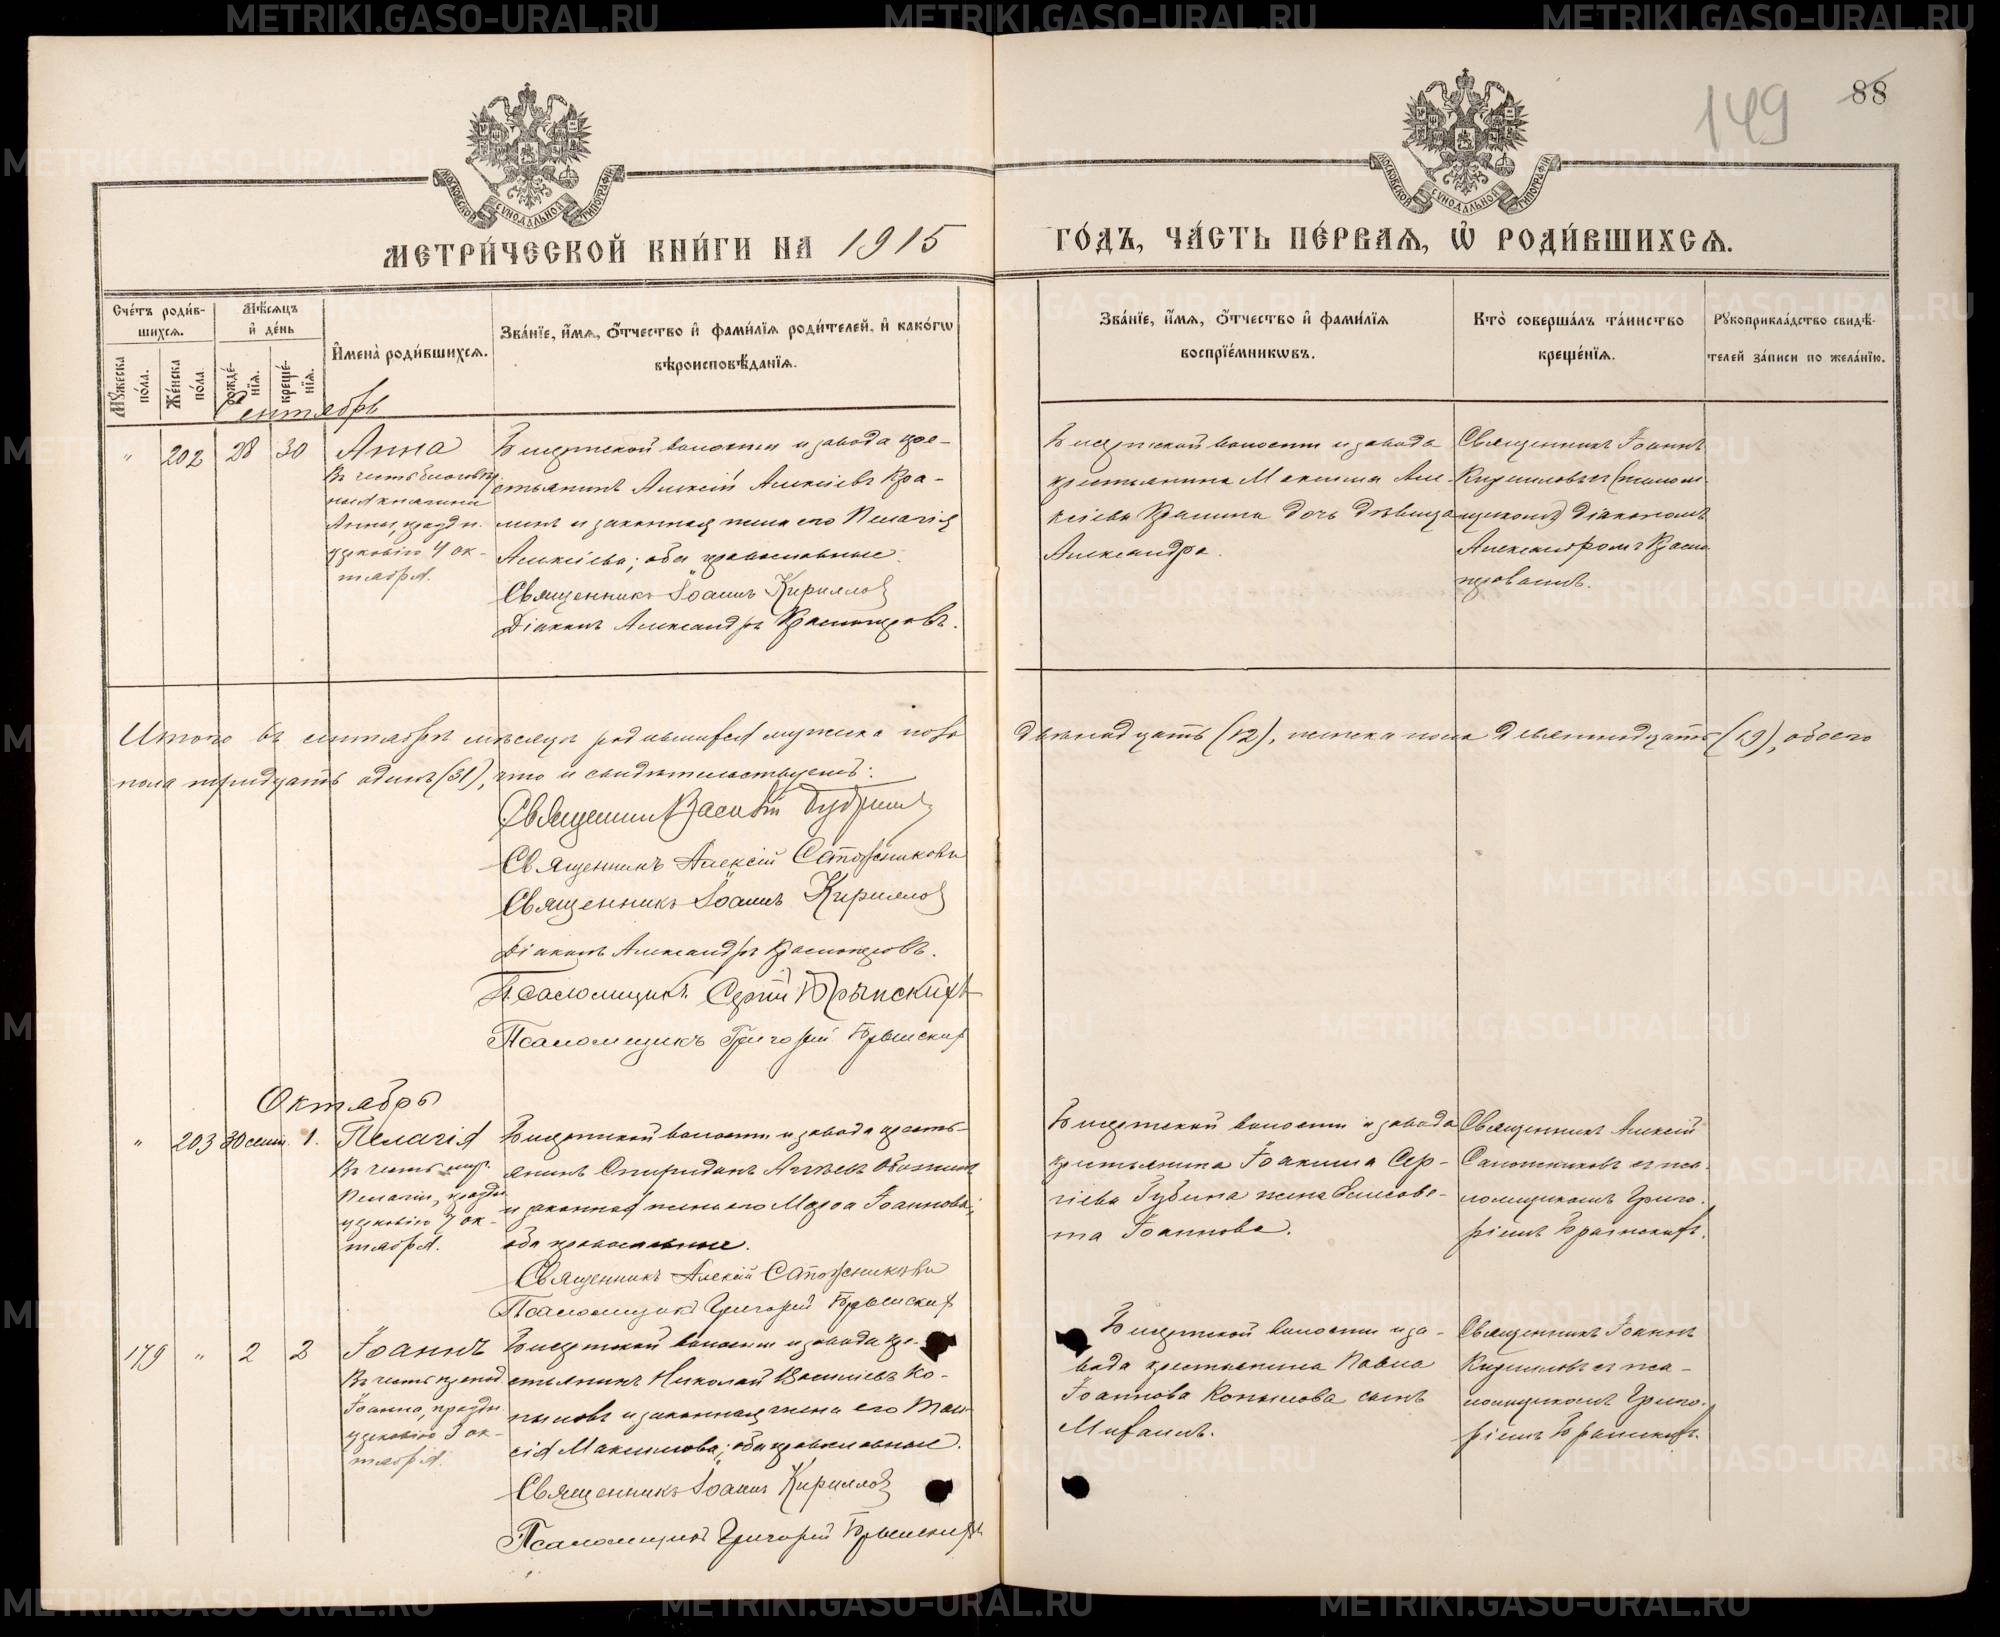 149
88
МОСКОВСКОЙ СѴНОДАЛЬНОЙ ТИПОГРАФІИ
МОСКОВСКОЙ СѴНОДАЛЬНОЙ ТИПОГРАФІИ
МЕТРИ́ЧЕСКОЙ КНИ́ГИ НА 1915
ГО́ДЪ, ЧА́СТЬ ПЕ́РВАѦ, Ѽ РОДИ́ВШИХСѦ.
Сче́тъ роди́в-
шихся.
Мѣ́сяцъ
и҆ де́нь
Мꙋ́жеска
по́ла.
Же́нска
по́ла.
рожде́-
нїѧ.
креще́-
нїѧ.
И҆мена̀ роди́вшихся.
Зва́нїе, и҆́мя, ѻ҆́тчество и҆ фами́лїя роди́телей, и҆ како́гѡ
вѣроисповѣ́данїя.
Зва́нїе, и҆́мя, ѻ҆́тчество и҆ фами́лїя
воспрїе́мникѡвъ.
Кто̀ соверша́лъ та́инство
креще́нїя.
Рꙋкоприкла́дство свидѣ́-
телей за́писи по жела́нїю.
Сентябрь
"
202
28
30
Анна
Въ честь благовѣр
ныя княгини
Анны, праздн.
церковію 4 ок-
тября.
Бисертской волости и завода кре-
стьянинъ Алексій Алексіевъ Кра-
линъ и законная жена его Пелагія
Алексіева; оба православные.
Священникъ Іоаннъ Кирилловъ
Діаконъ Александръ Краснопѣровъ.
Бисертской волости и завода
крестьянина Максима Але-
ксіева Кралина дочь дѣвица
Александра.
Священникъ Іоаннъ
Кирилловъ съ
діакономъ
Александромъ Красно
пѣровымъ.
Итого въ сентябрѣ мѣсяцѣ родившихся мужска пола
двѣнадцать (12), женска пола девятнадцать (19), обоего
пола тридцать одинъ (31), что и свидѣтельствуемъ:
Священникъ Василій
Священникъ Алексій Сапожниковъ
Священникъ Іоаннъ Кирилловъ
Діаконъ Александръ Краснопѣровъ.
Псаломщикъ Сергій
Псаломщикъ Григорій
Октябрь
"
203
30 сент.
1.
Пелагія
Въ честь
Пелагіи, праздн
церковію 7 ок-
тября.
Бисертской волости и завода кресть-
янинъ Спиридонъ
и законная жена его Марѳа Іоаннова;
оба православные.
Священникъ Алексій Сапожниковъ
Псаломщикъ Григорій
Бисертской волости и завода
крестьянина Іоакима Сер-
гіева Губина жена Елисаве-
та Іоаннова.
Священникъ Алексій
Сапожниковъ съ пса-
ломщикомъ Григо-
ріемъ
179
"
2
2
Іоаннъ
Въ честь препод
Іоанна, праздн
церковію 3 ок-
тября.
Бисертской волости и завода кре-
стьянинъ Николай Василіевъ Ко-
пыловъ и законная жена его Таи-
сія Максимова; оба православные.
Священникъ Іоаннъ Кирилловъ
Псаломщикъ Григорій
Бисертской волости и за-
вода крестьянина Павла
Іоаннова Копылова сынъ
Михаилъ.
Священникъ Іоаннъ
Кирилловъ съ пса-
ломщикомъ Григо-
ріемъ
METRIKI.GASO-URAL.RU